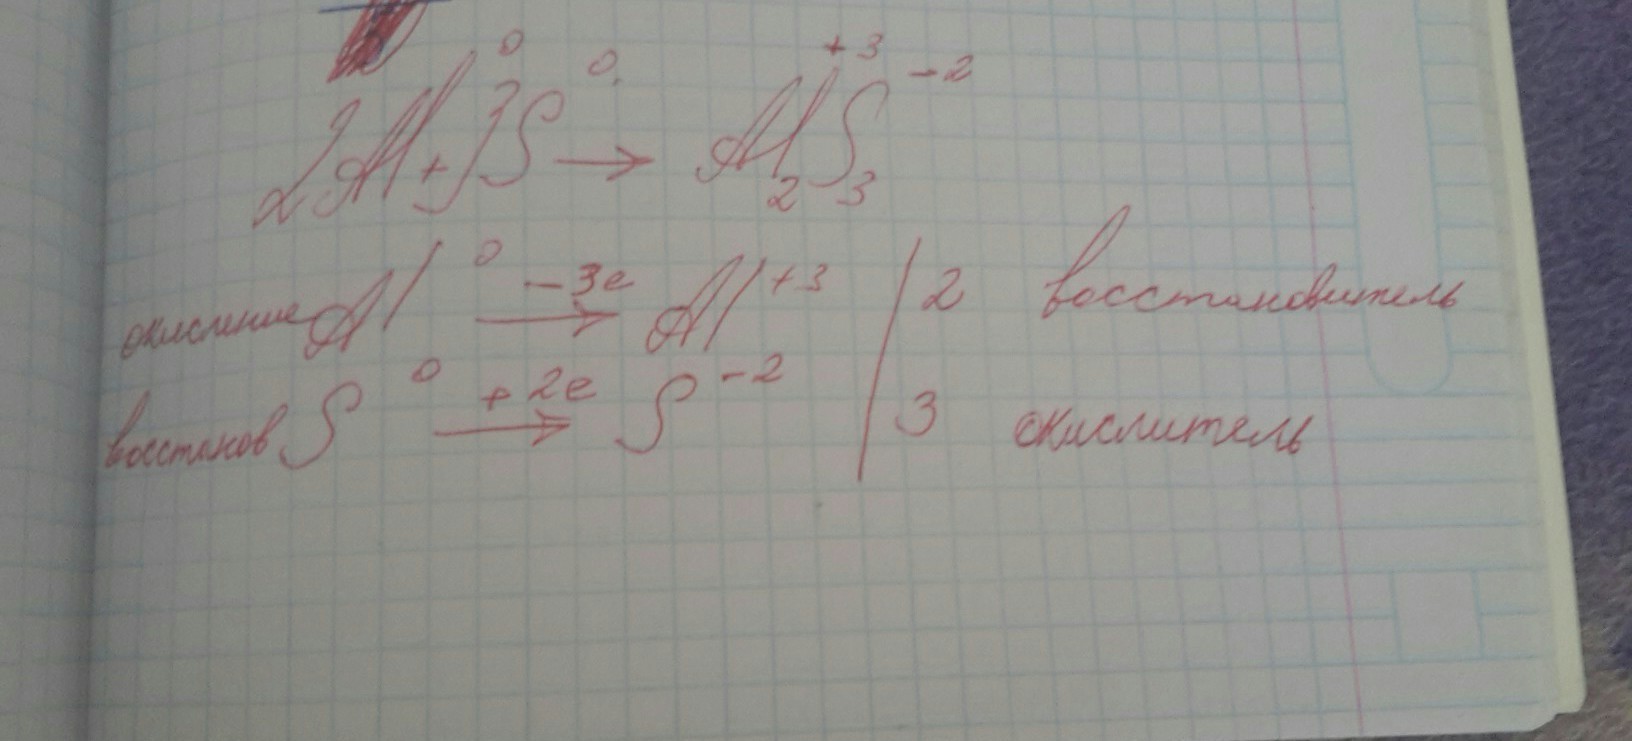 2Al⁰ + 3S⁰ → Al₂⁺³S₃⁻²
окисление Al⁰ −3e → Al⁺³ | 2 восстановитель
восстанов S⁰ +2e → S⁻² | 3 окислитель